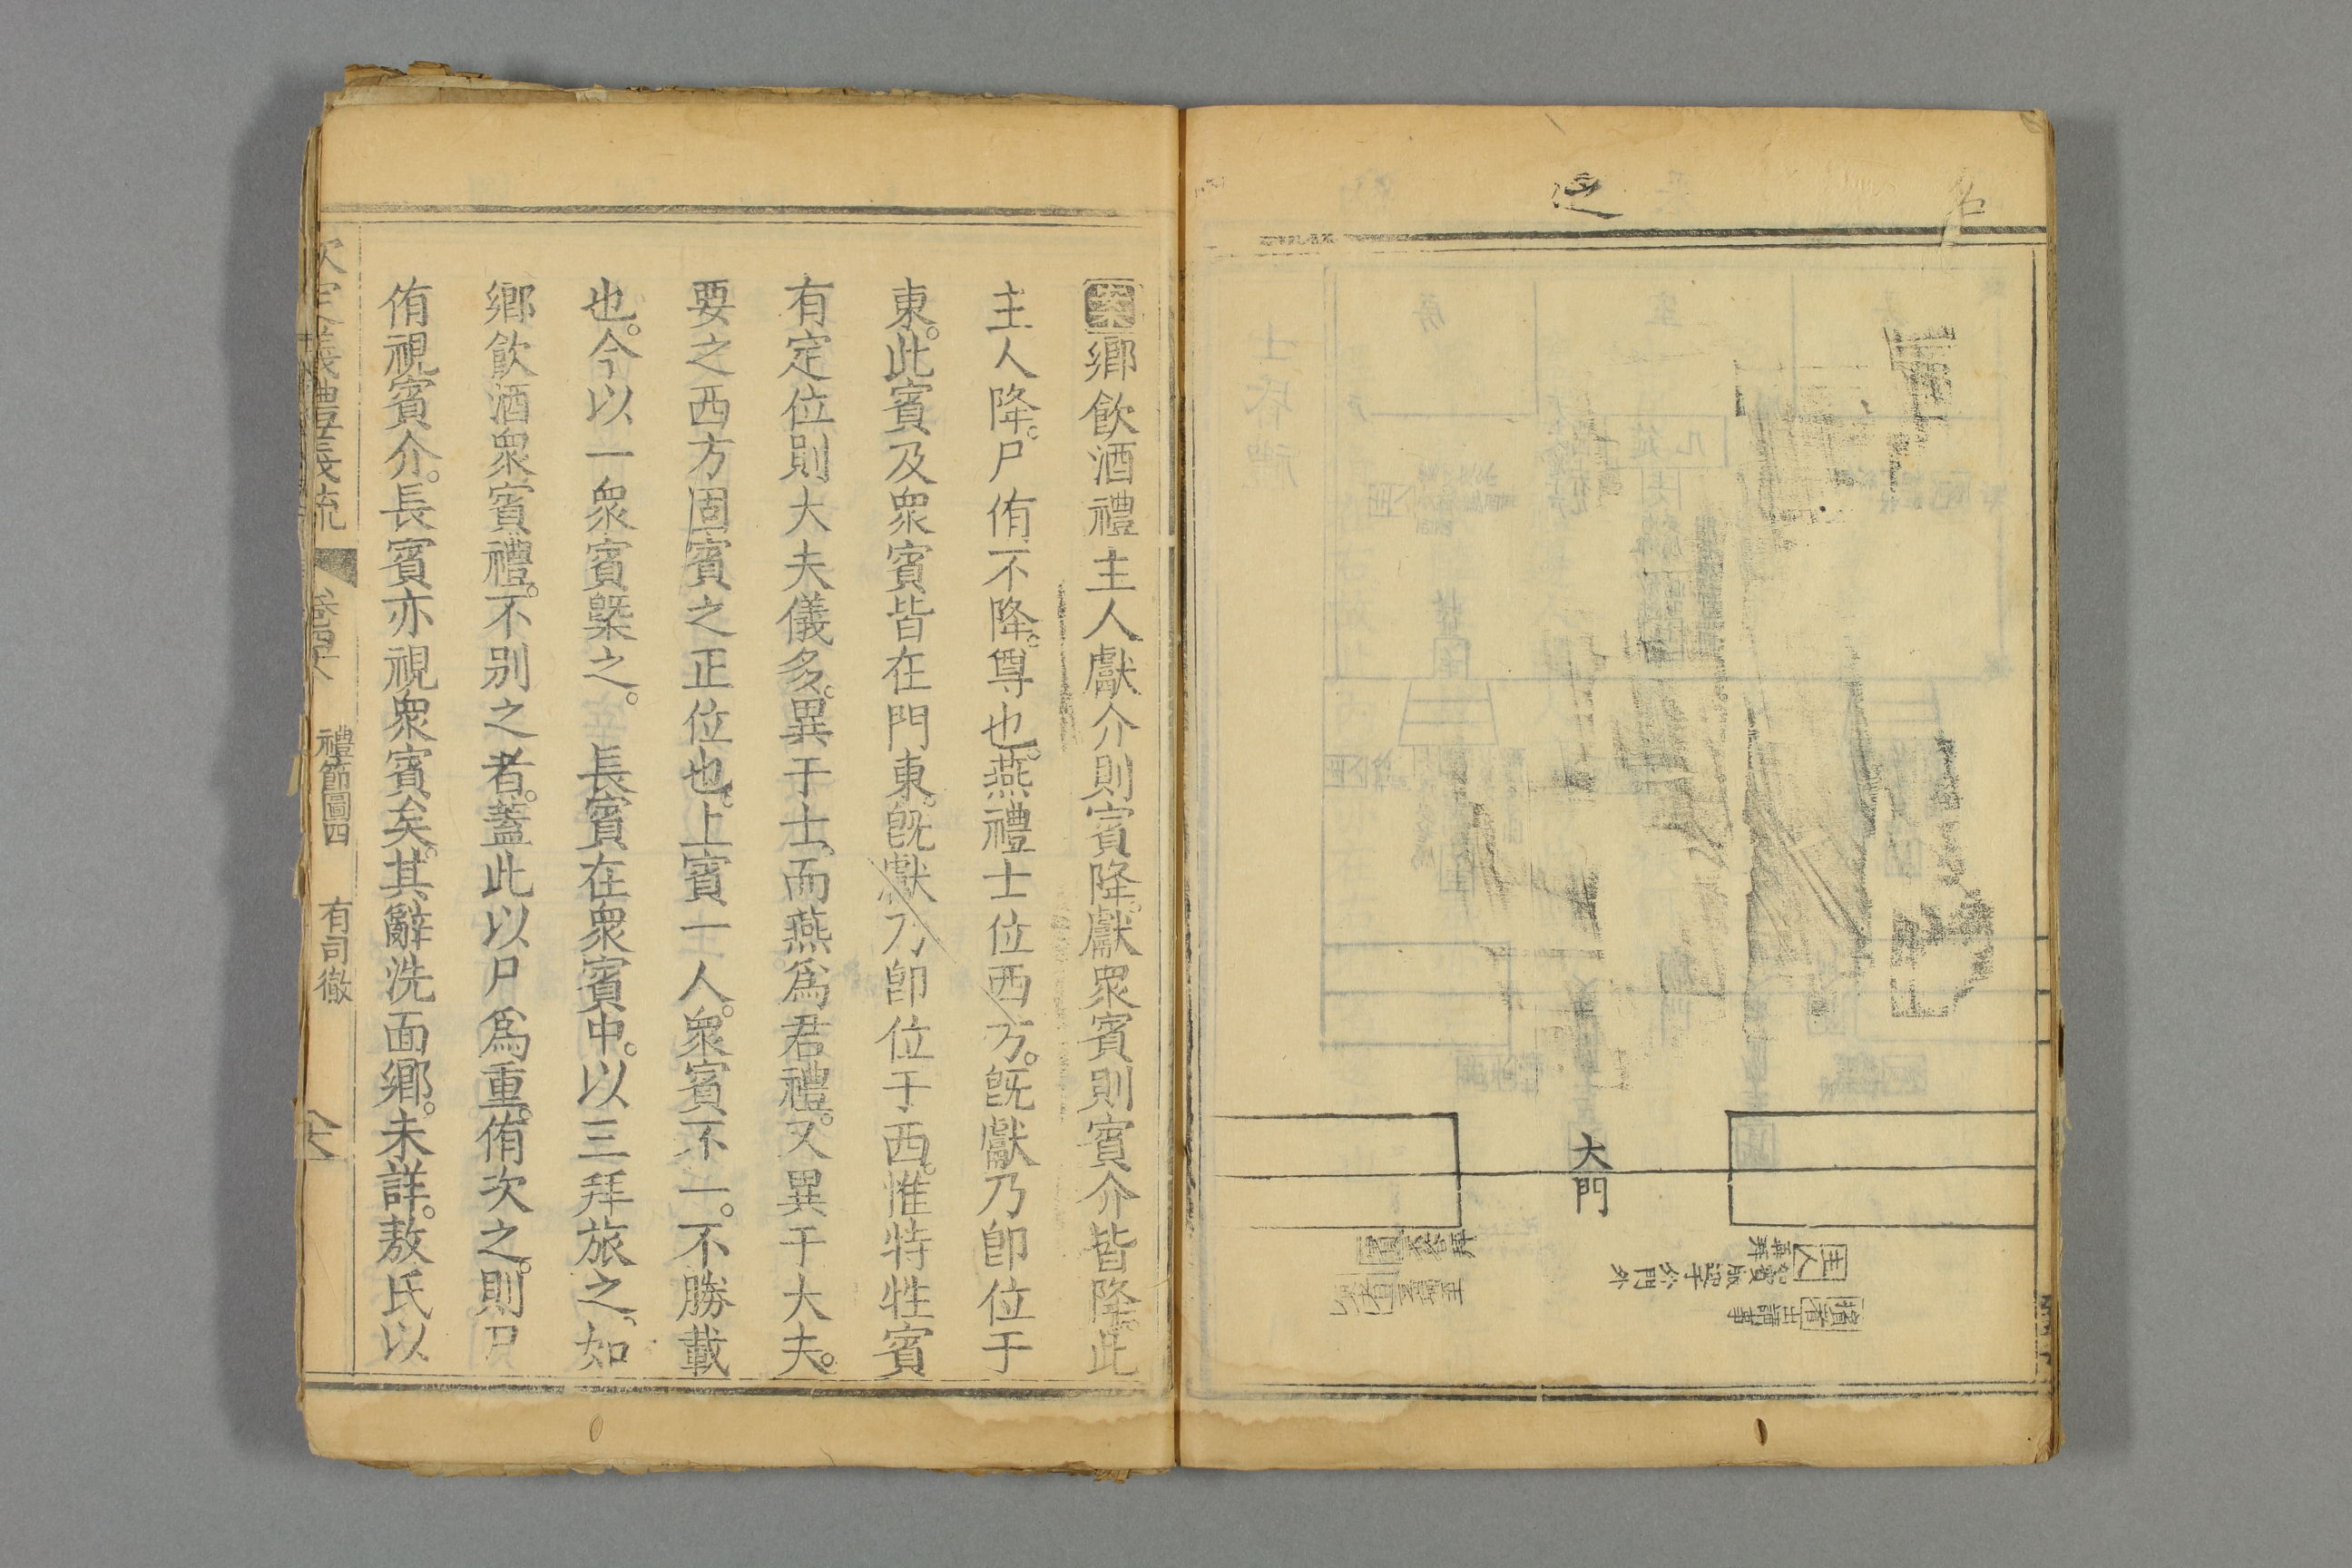 大門
主人
擯者出請事
案鄉飲酒禮主人獻介則賓降獻眾賓則賓介皆降此
主人降尸侑不降尊也燕禮士位西方旣獻乃卽位于
東此賓及眾賓皆在門東旣獻乃卽位于西惟特牲賓
有定位則大夫儀多異于士而燕爲君禮又異于大夫
要之西方固賓之正位也上賓一人眾賓不一不勝載
也今以一眾賓槩之 長賓在眾賓中以三拜旅之如
鄉飲酒眾賓禮不別之者蓋此以尸爲重侑次之則尸
侑視賓介長賓亦視眾賓矣其辭洗面鄉未詳敖氏以
禮節圖四 有司徹